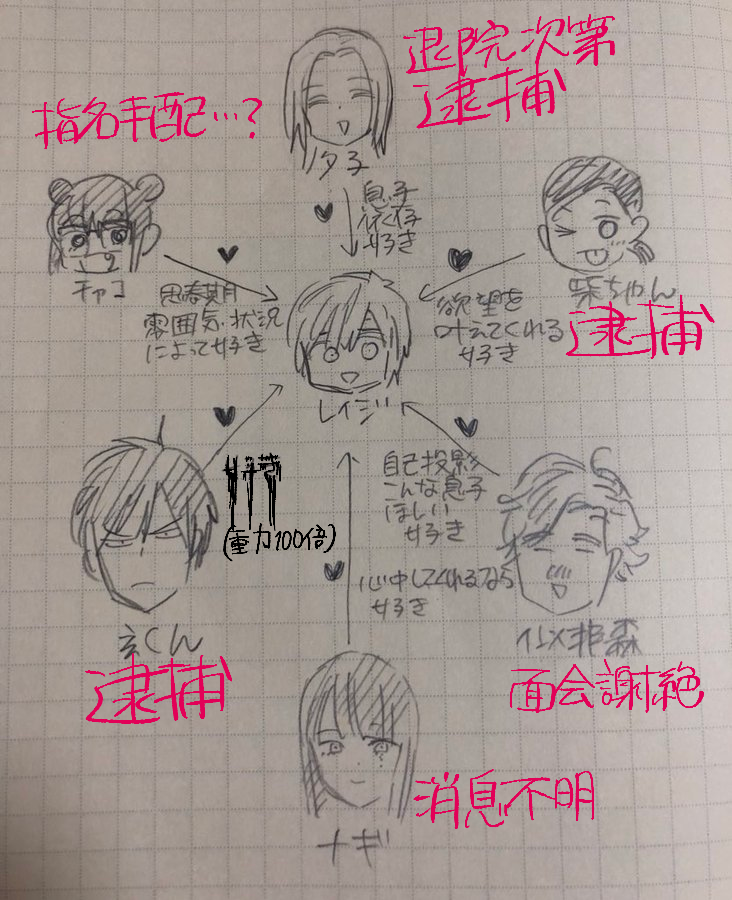 退院次第
逮捕
指名手配…?
夕子
息子
依存
好き
チャコ
思春期
雰囲気・状況
によって好き
柴ちゃん
逮捕
欲望を
叶えてくれる
好き
レイジ
好き
(重力100倍)
自己投影
こんな息子
ほしい
好き
玄くん
逮捕
似非森
面会謝絶
心中してくれるなら
好き
ナギ
消息不明